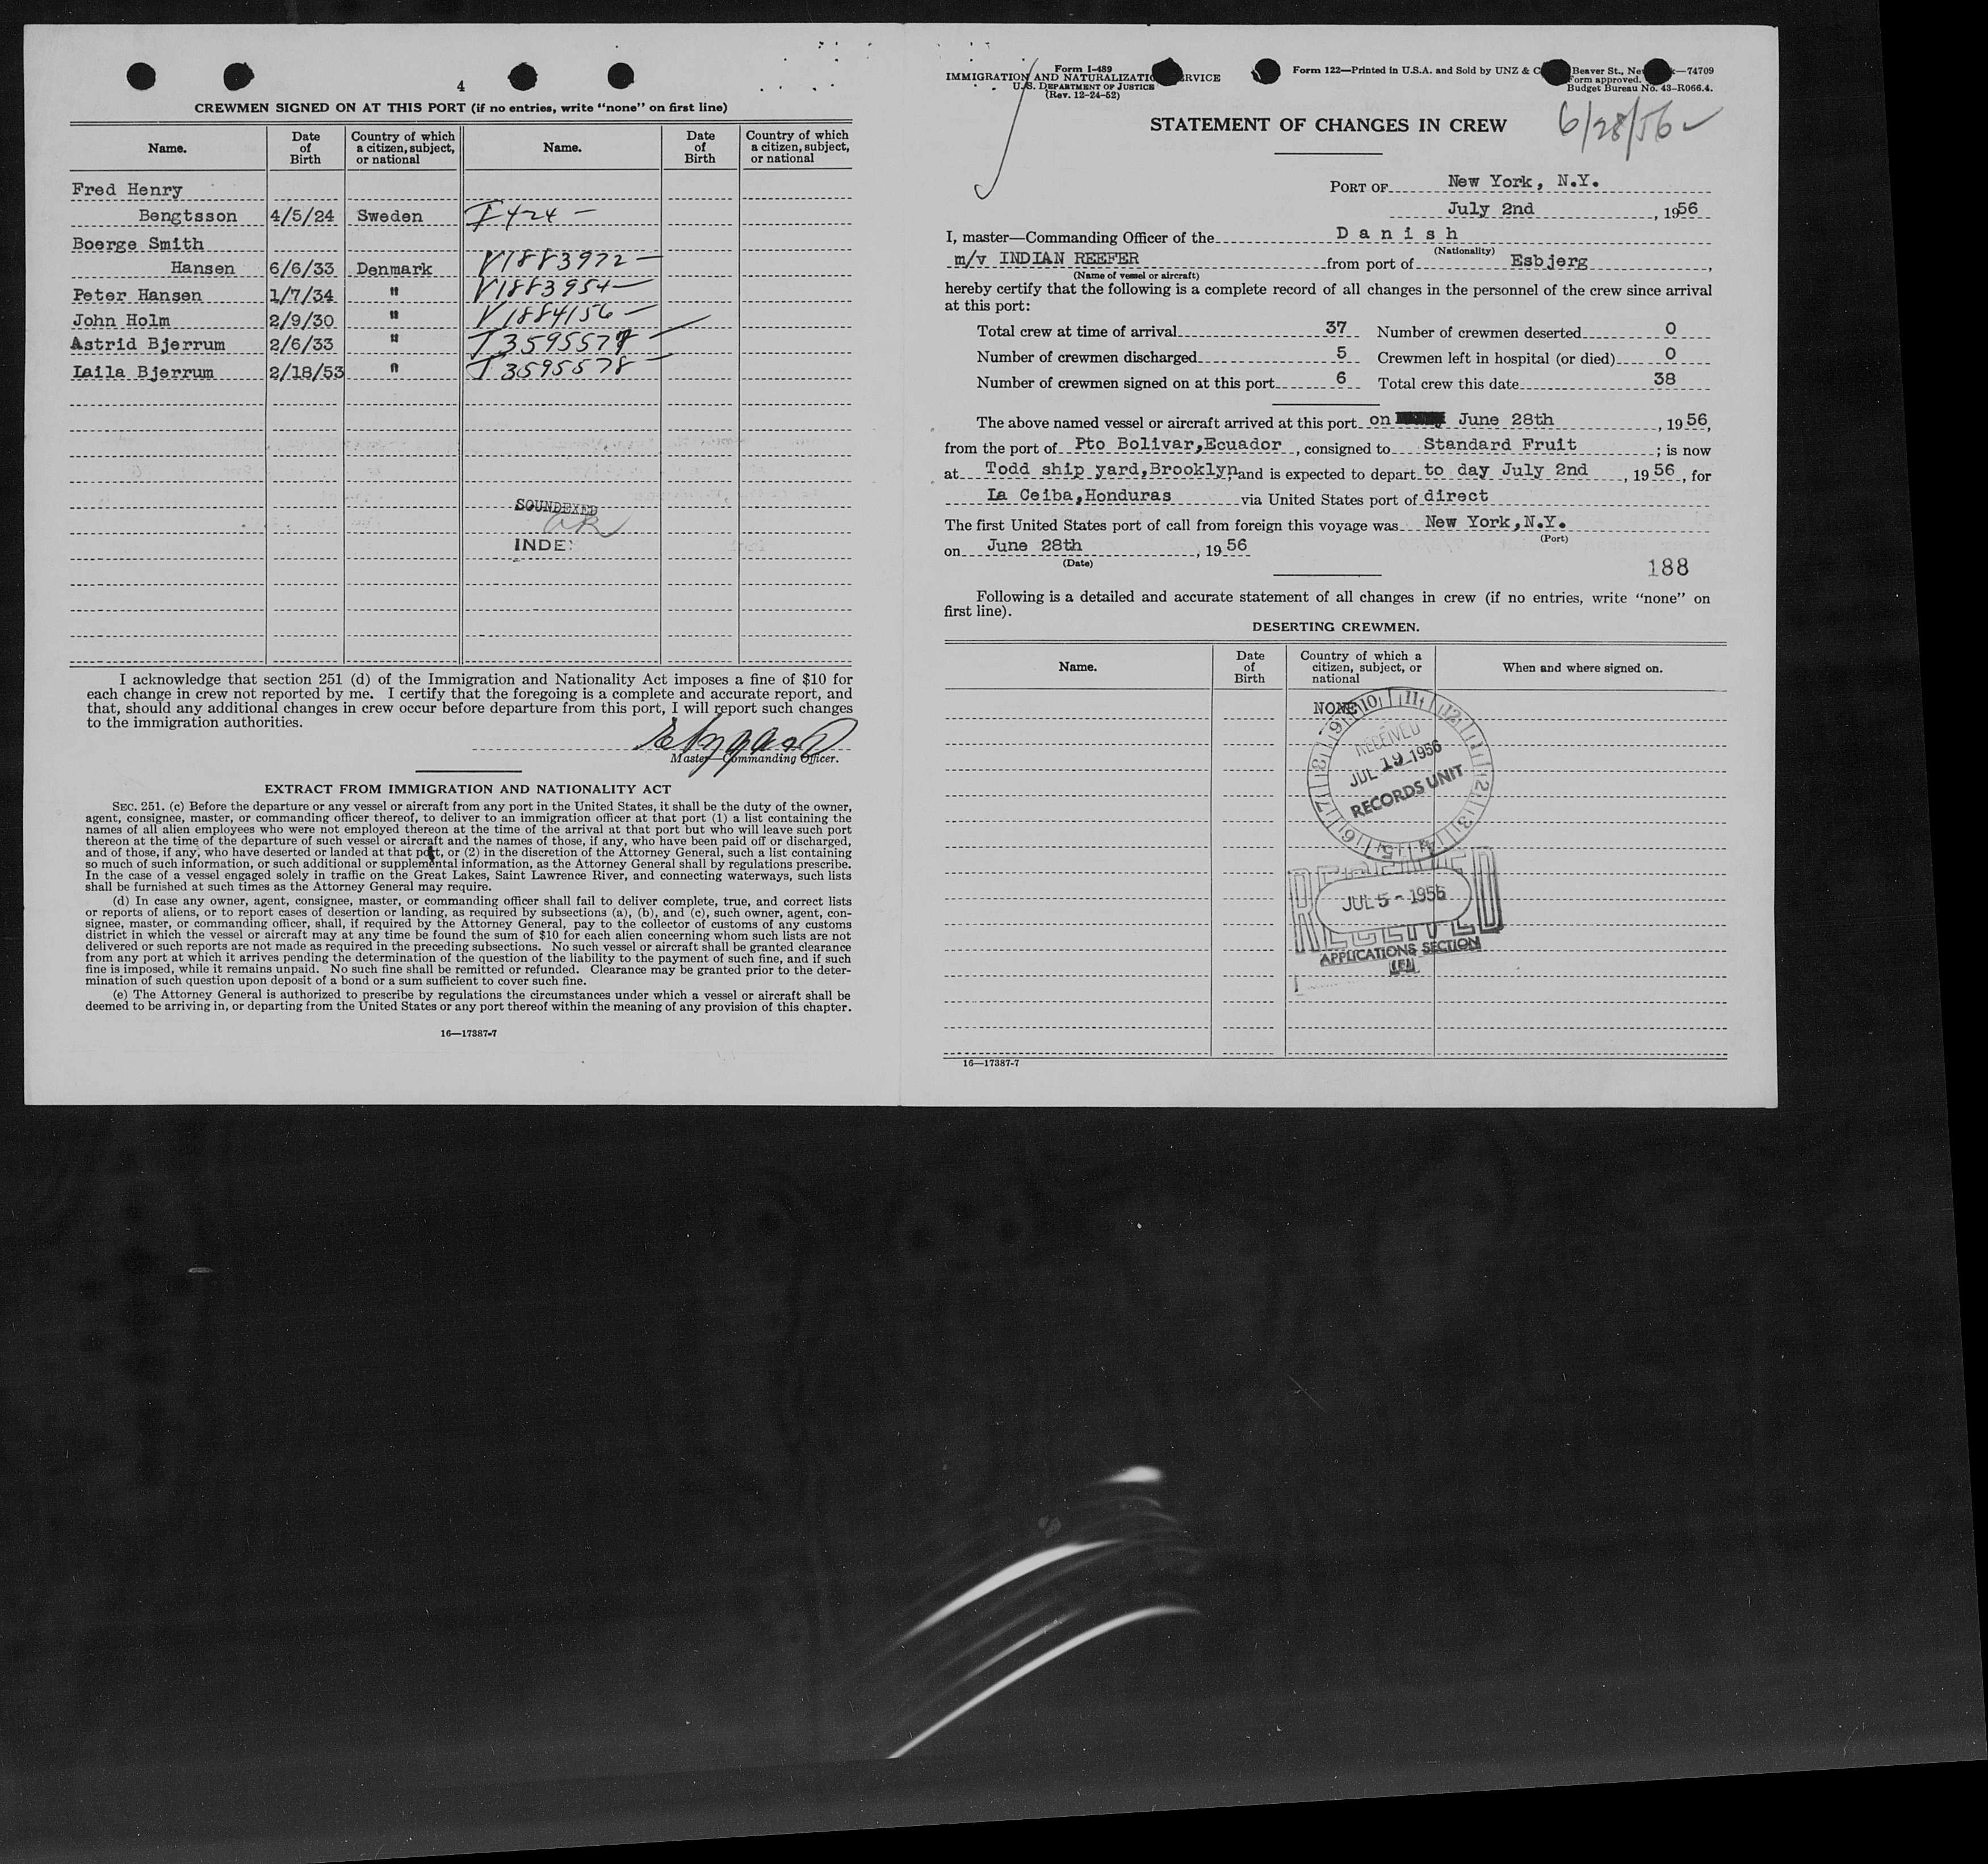 4
CREWMEN SIGNED ON AT THIS PORT (if no entries, write "none" on first line)
Name. Date of Birth Country of which a citizen, subject, or national Name. Date of Birth Country of which a citizen, subject, or national
Fred Henry
Bengtsson 4/5/24 Sweden I 424 —
Boerge Smith
Hansen 6/6/33 Denmark V1883972 —
Peter Hansen 1/7/34 " V1883954 —
John Holm 2/9/30 " V1884156 —
Astrid Bjerrum 2/6/33 " T3595577 —
Laila Bjerrum 2/18/53 " T3595578 —
SOUNDEXED
INDE
I acknowledge that section 251 (d) of the Immigration and Nationality Act imposes a fine of $10 for
each change in crew not reported by me. I certify that the foregoing is a complete and accurate report, and
that, should any additional changes in crew occur before departure from this port, I will report such changes
to the immigration authorities.
Master—Commanding Officer.
EXTRACT FROM IMMIGRATION AND NATIONALITY ACT
SEC. 251. (c) Before the departure or any vessel or aircraft from any port in the United States, it shall be the duty of the owner,
agent, consignee, master, or commanding officer thereof, to deliver to an immigration officer at that port (1) a list containing the
names of all alien employees who were not employed thereon at the time of the arrival at that port but who will leave such port
thereon at the time of the departure of such vessel or aircraft and the names of those, if any, who have been paid off or discharged,
and of those, if any, who have deserted or landed at that port, or (2) in the discretion of the Attorney General, such a list containing
so much of such information, or such additional or supplemental information, as the Attorney General shall by regulations prescribe.
In the case of a vessel engaged solely in traffic on the Great Lakes, Saint Lawrence River, and connecting waterways, such lists
shall be furnished at such times as the Attorney General may require.
(d) In case any owner, agent, consignee, master, or commanding officer shall fail to deliver complete, true, and correct lists
or reports of aliens, or to report cases of desertion or landing, as required by subsections (a), (b), and (c), such owner, agent, con-
signee, master, or commanding officer, shall, if required by the Attorney General, pay to the collector of customs of any customs
district in which the vessel or aircraft may at any time be found the sum of $10 for each alien concerning whom such lists are not
delivered or such reports are not made as required in the preceding subsections. No such vessel or aircraft shall be granted clearance
from any port at which it arrives pending the determination of the question of the liability to the payment of such fine, and if such
fine is imposed, while it remains unpaid. No such fine shall be remitted or refunded. Clearance may be granted prior to the deter-
mination of such question upon deposit of a bond or a sum sufficient to cover such fine.
(e) The Attorney General is authorized to prescribe by regulations the circumstances under which a vessel or aircraft shall be
deemed to be arriving in, or departing from the United States or any port thereof within the meaning of any provision of this chapter.
16—17387-7
Form I-489
IMMIGRATION AND NATURALIZATIO RVICE
U.S. DEPARTMENT OF JUSTICE
(Rev. 12-24-52)
Form 122—Printed in U.S.A. and Sold by UNZ & C Beaver St., Ne k—74709
Form approved.
Budget Bureau No. 43-R066.4.
STATEMENT OF CHANGES IN CREW
6/28/56
PORT OF New York, N.Y.
July 2nd, 1956
I, master—Commanding Officer of the Danish
(Nationality)
m/v INDIAN REEFER from port of Esbjerg,
(Name of vessel or aircraft)
hereby certify that the following is a complete record of all changes in the personnel of the crew since arrival
at this port:
Total crew at time of arrival 37 Number of crewmen deserted 0
Number of crewmen discharged 5 Crewmen left in hospital (or died) 0
Number of crewmen signed on at this port 6 Total crew this date 38
The above named vessel or aircraft arrived at this port on June 28th, 1956,
from the port of Pto Bolivar,Ecuador, consigned to Standard Fruit; is now
at Todd ship yard,Brooklyn, and is expected to depart to day July 2nd, 1956, for
La Ceiba,Honduras via United States port of direct
The first United States port of call from foreign this voyage was New York,N.Y.
(Port)
on June 28th, 1956
(Date)
188
Following is a detailed and accurate statement of all changes in crew (if no entries, write "none" on
first line).
DESERTING CREWMEN.
Name. Date of Birth Country of which a citizen, subject, or national When and where signed on.
NONE
9 10 11 12 1 2 3 4 5 6 7 8
RECEIVED
JUL 19 1956
RECORDS UNIT
RECEIVED
JUL 5 - 1956
APPLICATIONS SECTION
16—17387-7